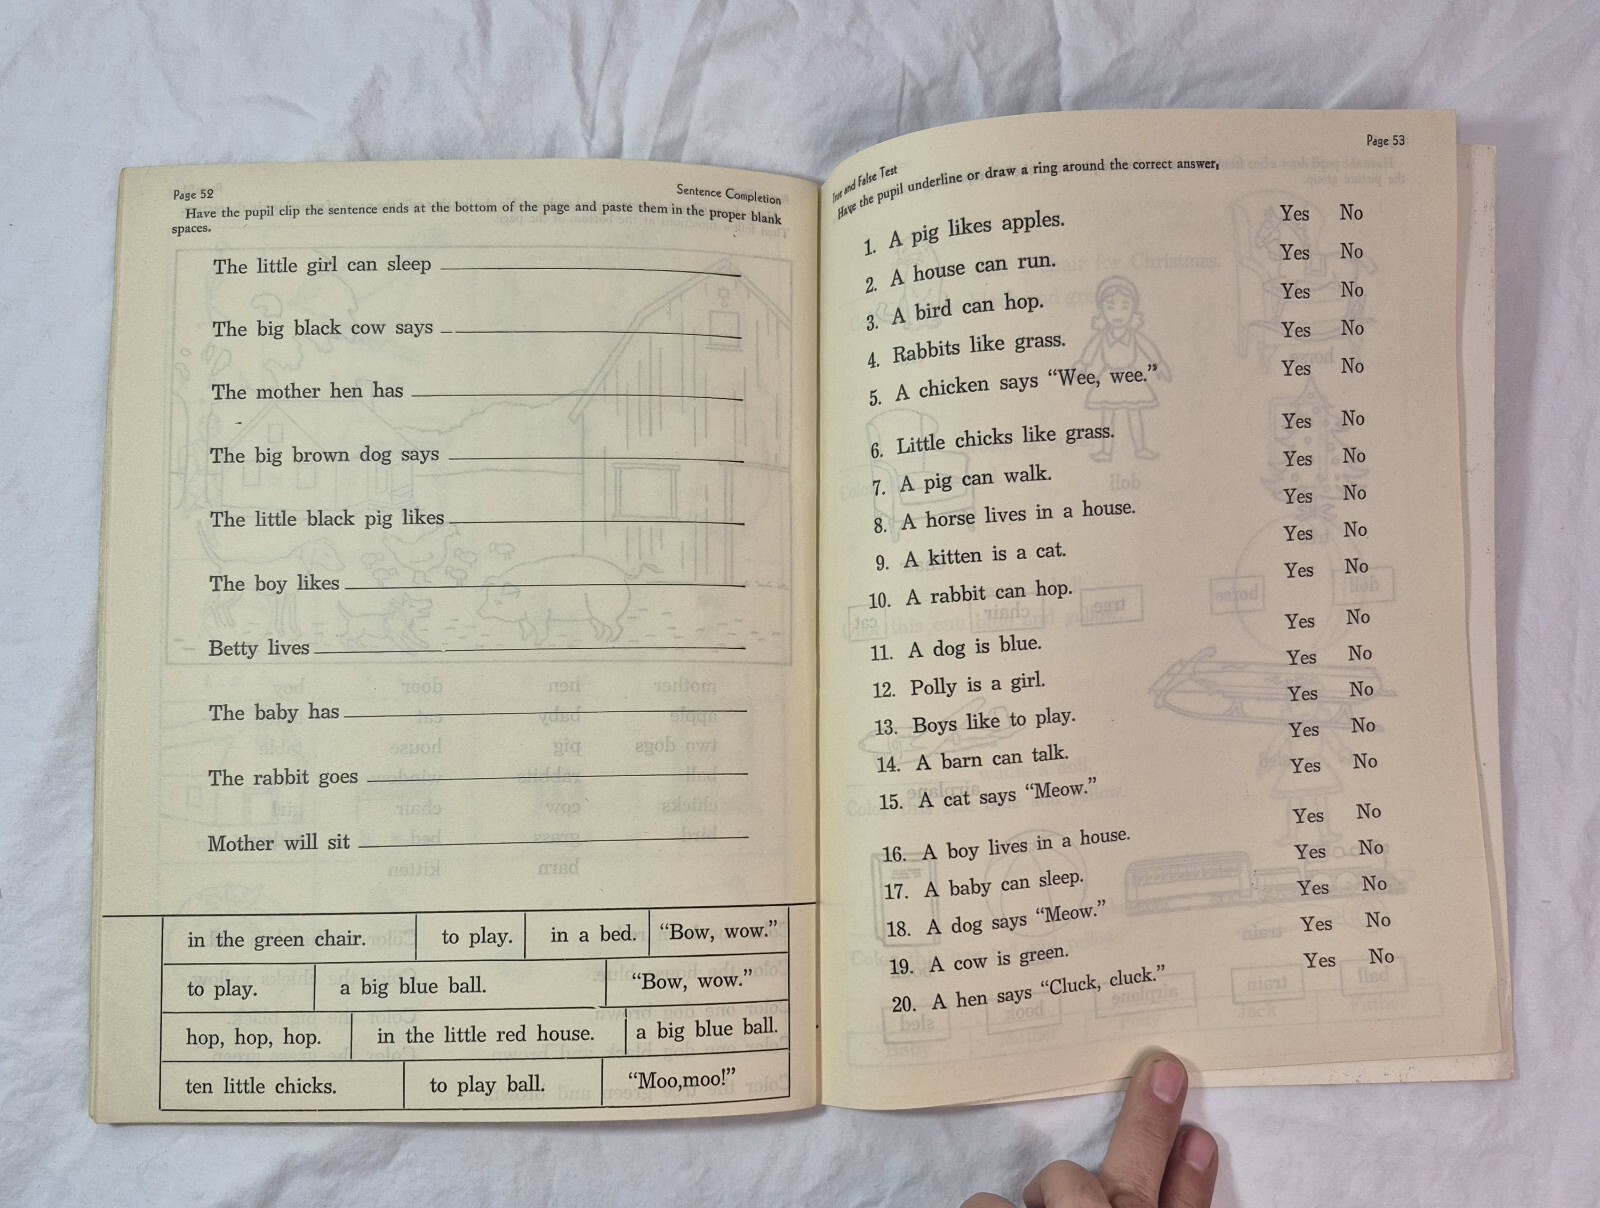 Page 52
Sentence Completion
Have the pupil clip the sentence ends at the bottom of the page and paste them in the proper blank
spaces.
The little girl can sleep
The big black cow says
The mother hen has
The big brown dog says
The little black pig likes
The boy likes
Betty lives
The baby has
The rabbit goes
Mother will sit
in the green chair. to play. in a bed. “Bow, wow.”
to play. a big blue ball. “Bow, wow.”
hop, hop, hop. in the little red house. a big blue ball.
ten little chicks. to play ball. “Moo,moo!”
Page 53
True and False Test
Have the pupil underline or draw a ring around the correct answer.
1. A pig likes apples. Yes No
2. A house can run. Yes No
3. A bird can hop. Yes No
4. Rabbits like grass. Yes No
5. A chicken says “Wee, wee.” Yes No
6. Little chicks like grass. Yes No
7. A pig can walk. Yes No
8. A horse lives in a house. Yes No
9. A kitten is a cat. Yes No
10. A rabbit can hop. Yes No
11. A dog is blue. Yes No
12. Polly is a girl. Yes No
13. Boys like to play. Yes No
14. A barn can talk. Yes No
15. A cat says “Meow.” Yes No
16. A boy lives in a house. Yes No
17. A baby can sleep. Yes No
18. A dog says “Meow.” Yes No
19. A cow is green. Yes No
20. A hen says “Cluck, cluck.” Yes No